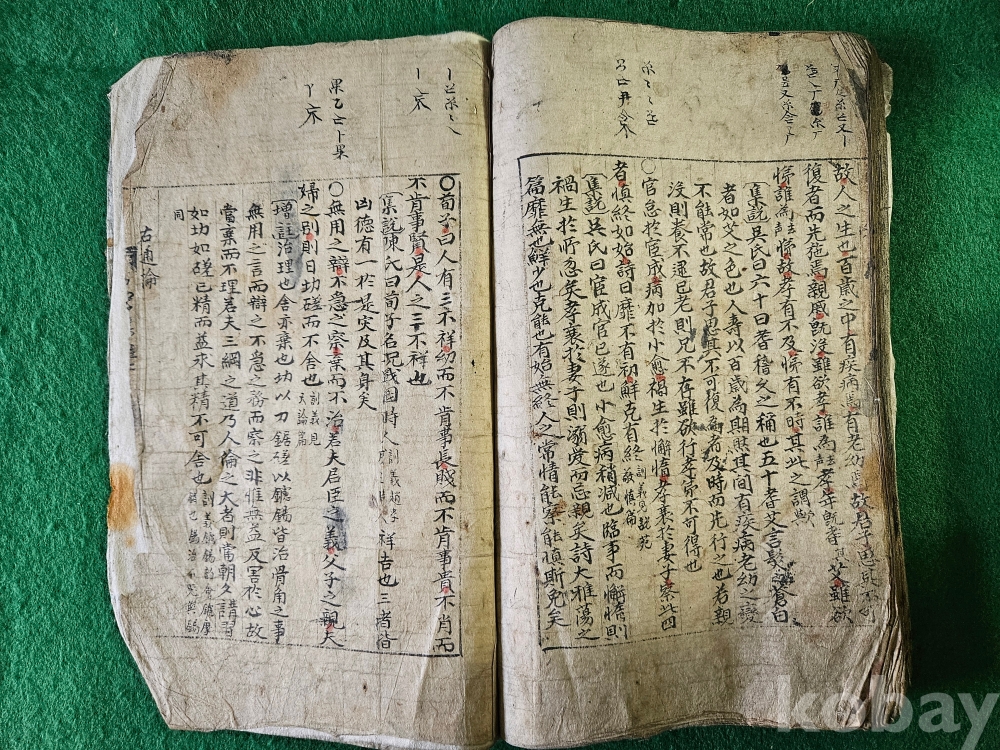 故人之生也百歲之中有疾病焉有老幼焉故君子思其不可
復者而先施焉親戚旣沒雖欲孝誰爲孝年旣耆艾雖欲
悌誰爲悌故孝有不及悌有不時其此之謂歟
集說吳氏曰六十曰耆稽久之稱也五十者艾言髮之蒼白
者如艾之色也人壽以百歲為期然其間有疾病老幼之變
不能常也故君子思其不可復者及時而先行之也若親
沒則養不逮己老則兄不存雖欲行孝弟不可得也
○官怠於宦成病加於小愈禍生於懈惰孝衰於妻子察此四
者愼終如始詩曰靡不有初鮮克有終
集說吳氏曰宦成官已遂也小愈病稍減也臨事而懈惰則
禍生於所忽矣孝衰於妻子則溺愛而忘親矣詩大雅蕩之
篇靡無也鮮少也克能也有始無終人之常情能察能愼斯免矣
○荀子曰人有三不祥幼而不肯事長賤而不肯事貴不肖而
不肯事賢是人之三不祥也
集說陳氏曰荀子名況戰國時人 祥吉也三者皆
凶德有一於是災及其身矣
○無用之辯不急之察棄而不治若夫君臣之義父子之親夫
婦之別則日切磋而不舍也
增註治理也舍亦棄也切以刀鋸磋以鑢鐋皆治骨角之事
無用之言而辯之不急之務而察之非惟無益反害於心故
當棄而不理若夫三綱之道乃人倫之大者則當朝夕講習
如切如磋已精而益求其精不可舍也
同
右通論